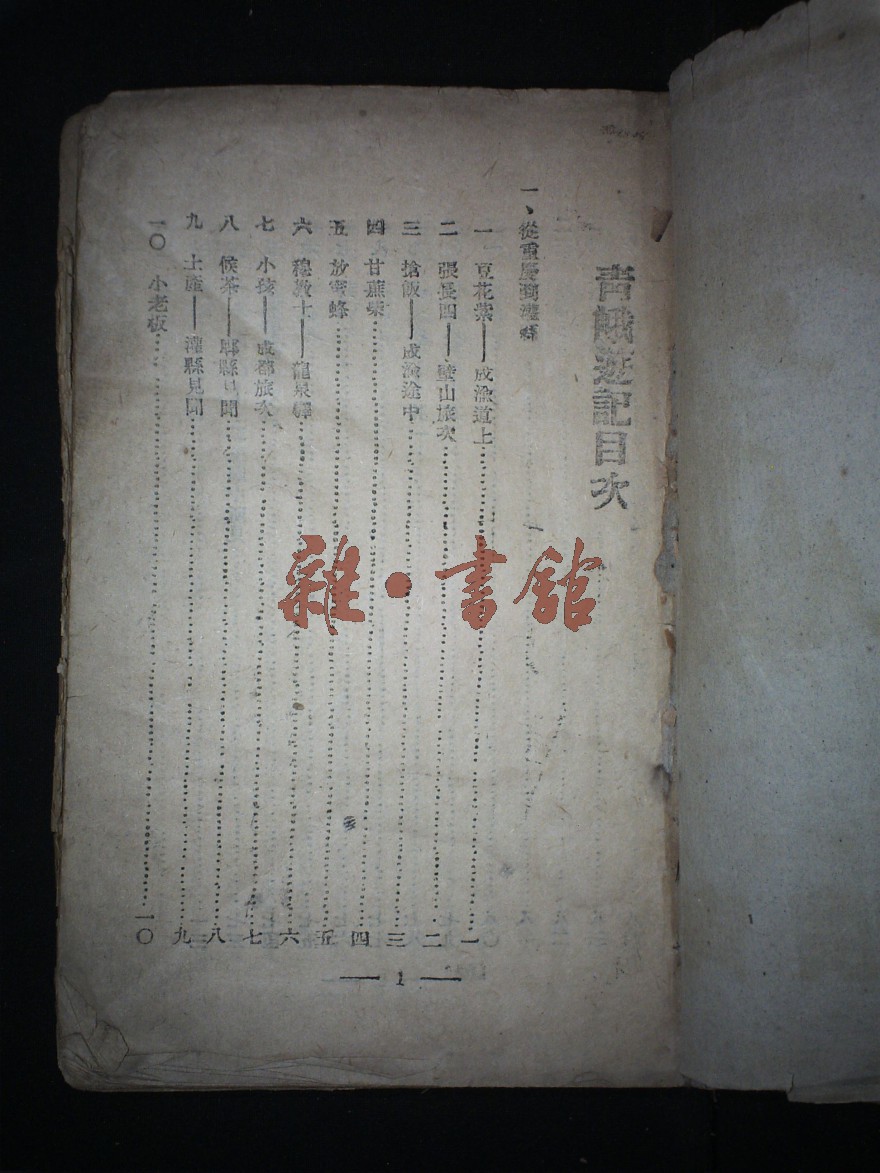 青峨遊記目次
一、從重慶到灌縣
一 豆花業——成渝道上 一
二 張長四——璧山旅次 二
三 搶飯——成渝途中 三
四 甘蔗業 四
五 放蜜蜂 五
六 穩敎士——龍泉驛 六
七 小孩——成都旅次 七
八 候茶——郫縣見聞 八
九 土產——灌縣見聞 九
一〇 小老板 一〇
— 1 —
雜·書舘